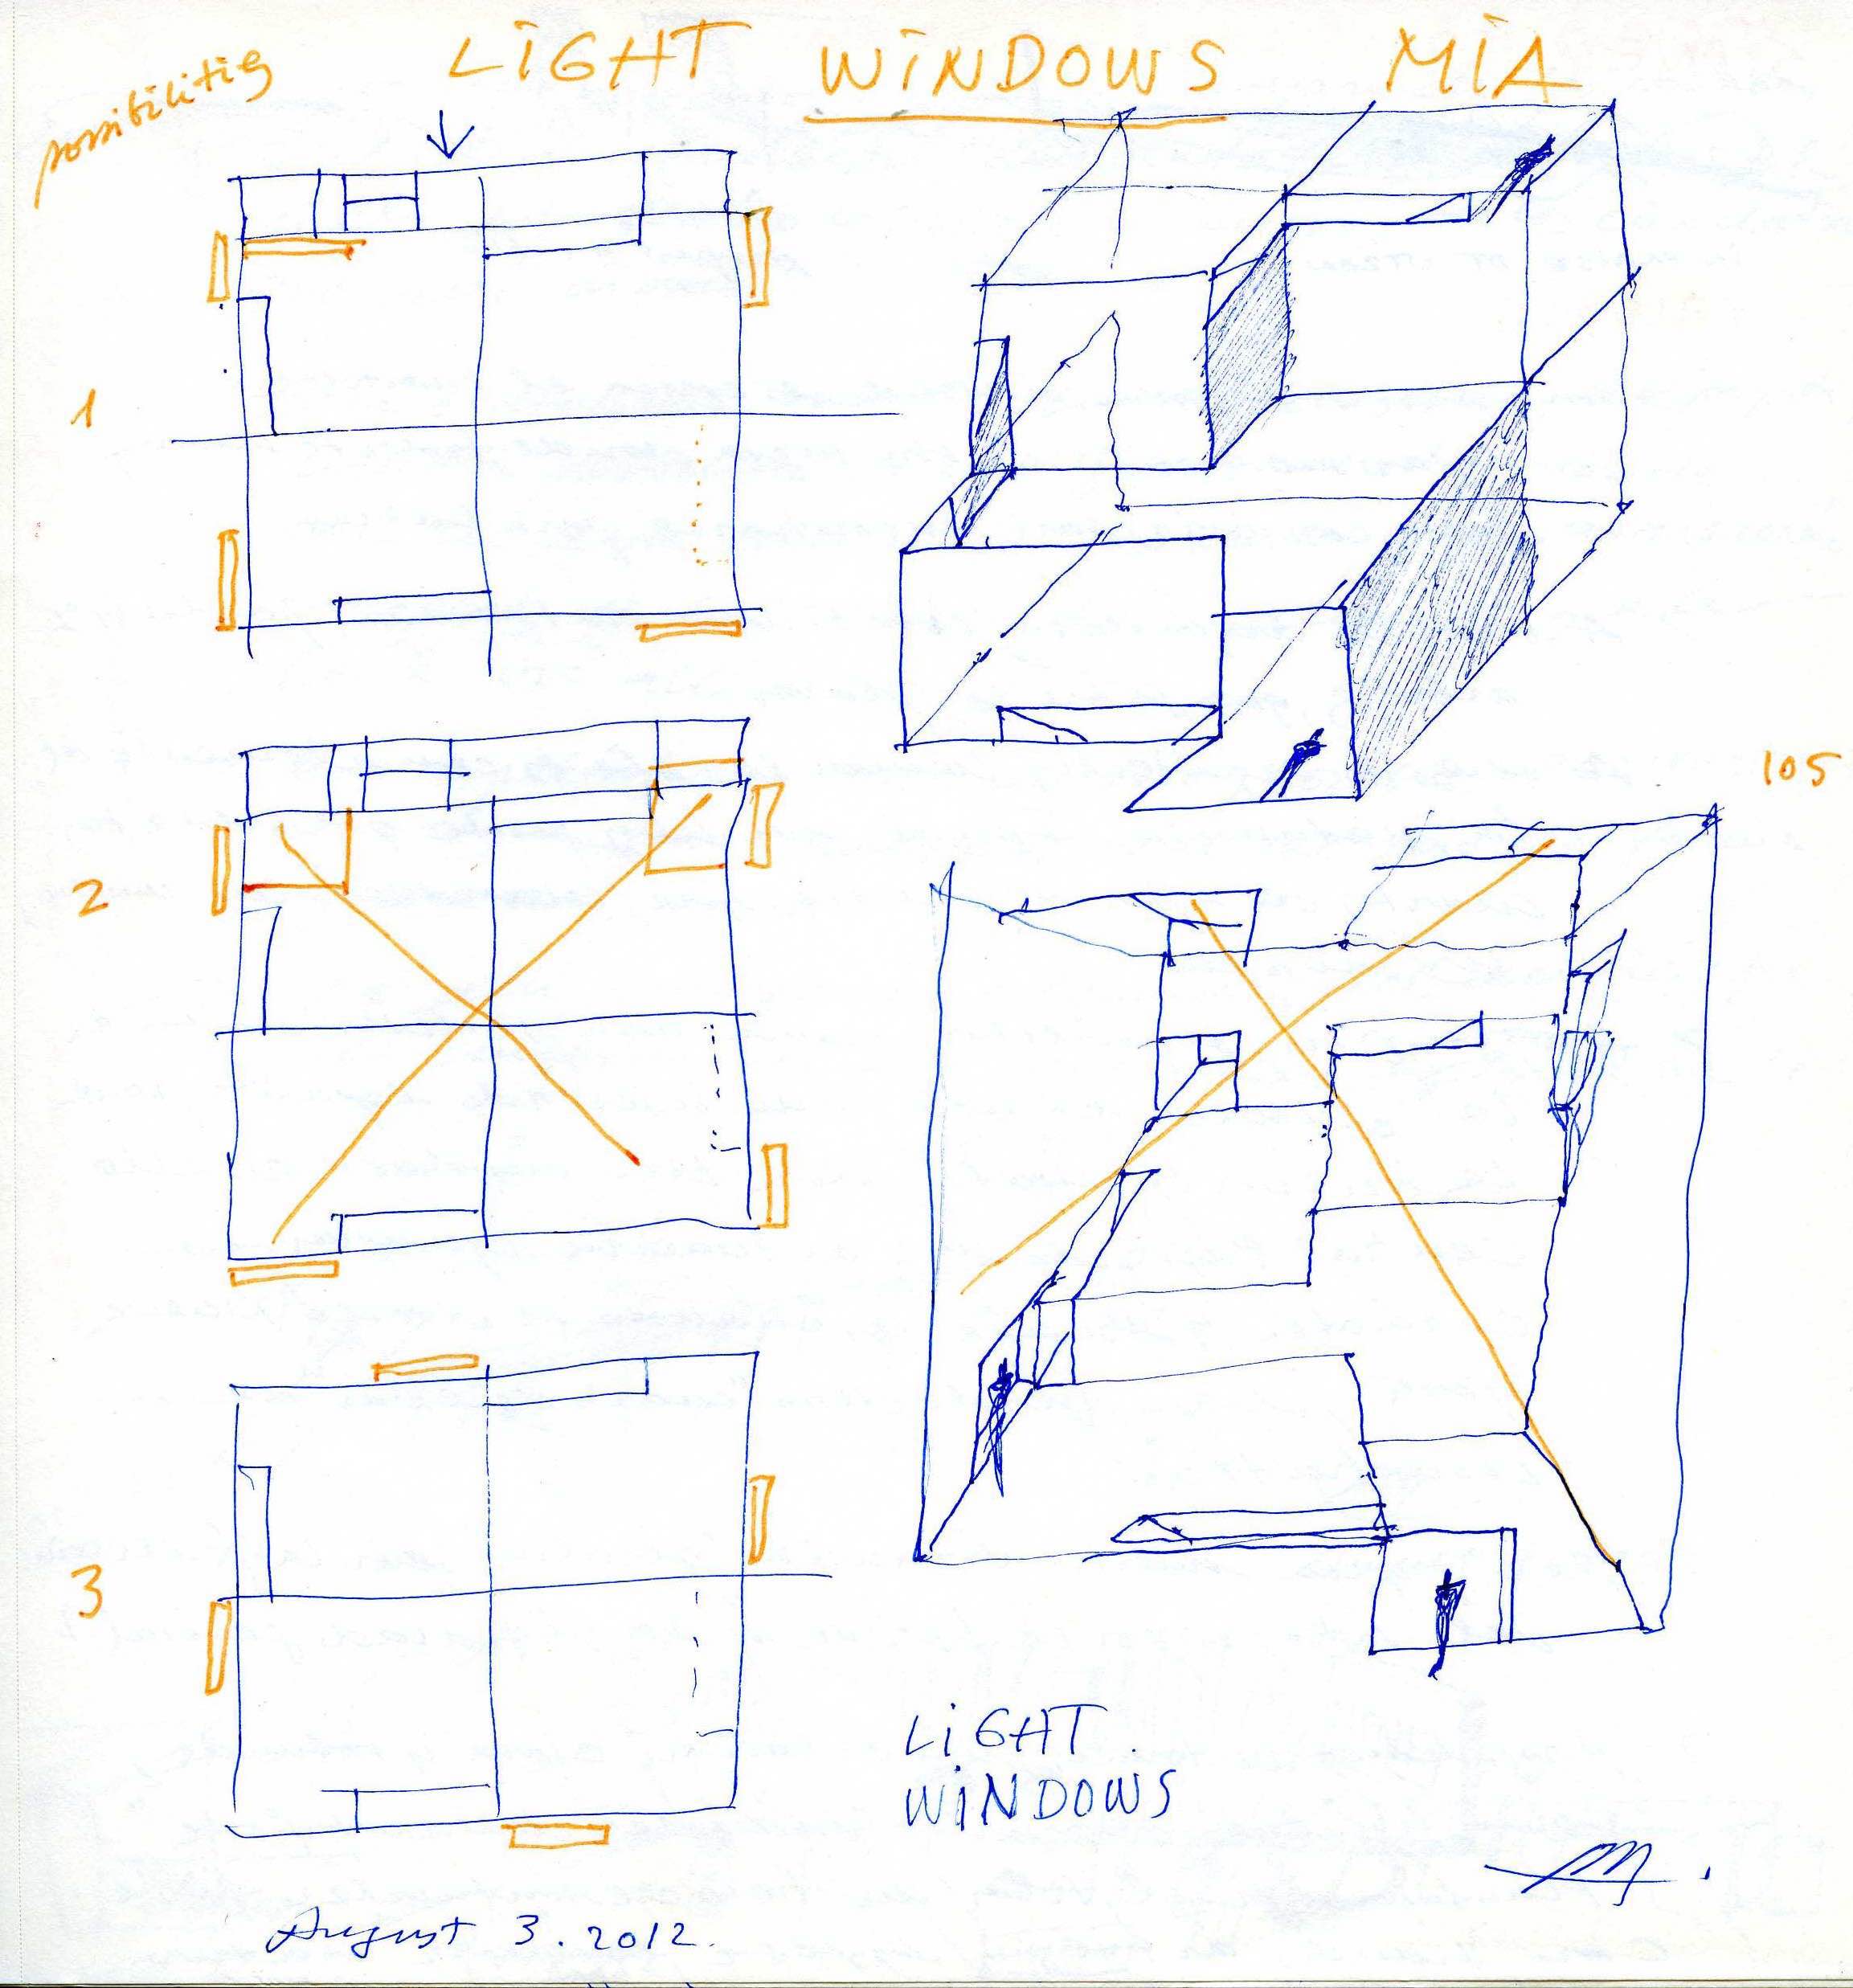 LiGHT WiNDOWS MiA
possibilities
1
2
105
3
LiGHT
WiNDOWS
August 3. 2012.